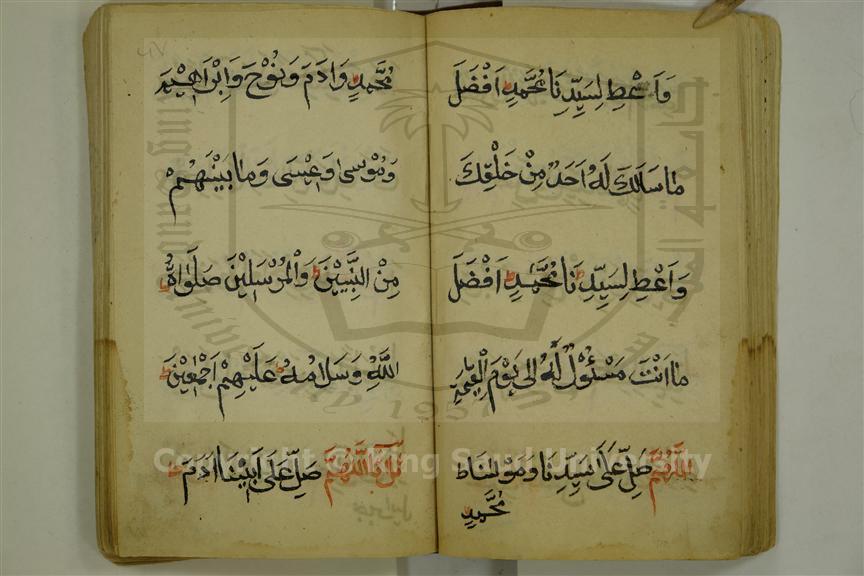 وَاَعْطِ لِسَيِّدِنَا مُحَمَّدٍ اَفْضَلَ
مَا سَاَلَكَ لَهُ اَحَدٌ مِنْ خَلْقِكَ
وَاَعْطِ لِسَيِّدِنَا مُحَمَّدٍ اَفْضَلَ
مَا اَنْتَ مَسْئُوْلٌ لَهُ اِلٰى يَوْمِ الْقِيٰمَةِ
اَللّٰهُمَّ صَلِّ عَلٰى سَيِّدِنَا وَمَوْلٰىنَا
مُحَمَّدٍ
مُحَمَّدٍ وَاٰدَمَ وَنُوْحَ وَاِبْرَاهِيْمَ
وَمُوْسٰى وَعِيْسَى وَمَا بَيْنَهُمْ
مِنَ النَّبِيِّيْنَ وَالْمُرْسَلِيْنَ صَلَوَاةُ
اللّٰهِ وَسَلَامُهُ عَلَيْهِمْ اَجْمَعِيْنَ
اَللّٰهُمَّ صَلِّ عَلٰى اَبِيْنَا اٰدَمَ
Copyright © King Saud University
1957